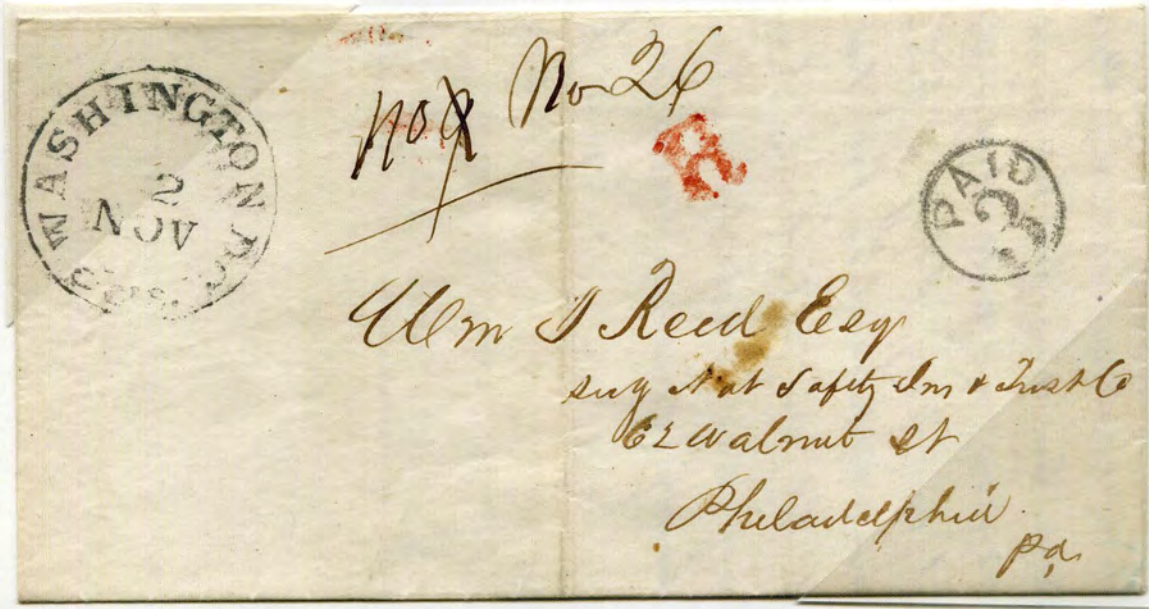 WASHINGTON D.C.
2
NOV
No 9 No 26
R
PAID
3
Wm J Reed Esq
Secy Nat Safety Ins & Trust Co
62 Walnut St
Philadelphia
Pa,